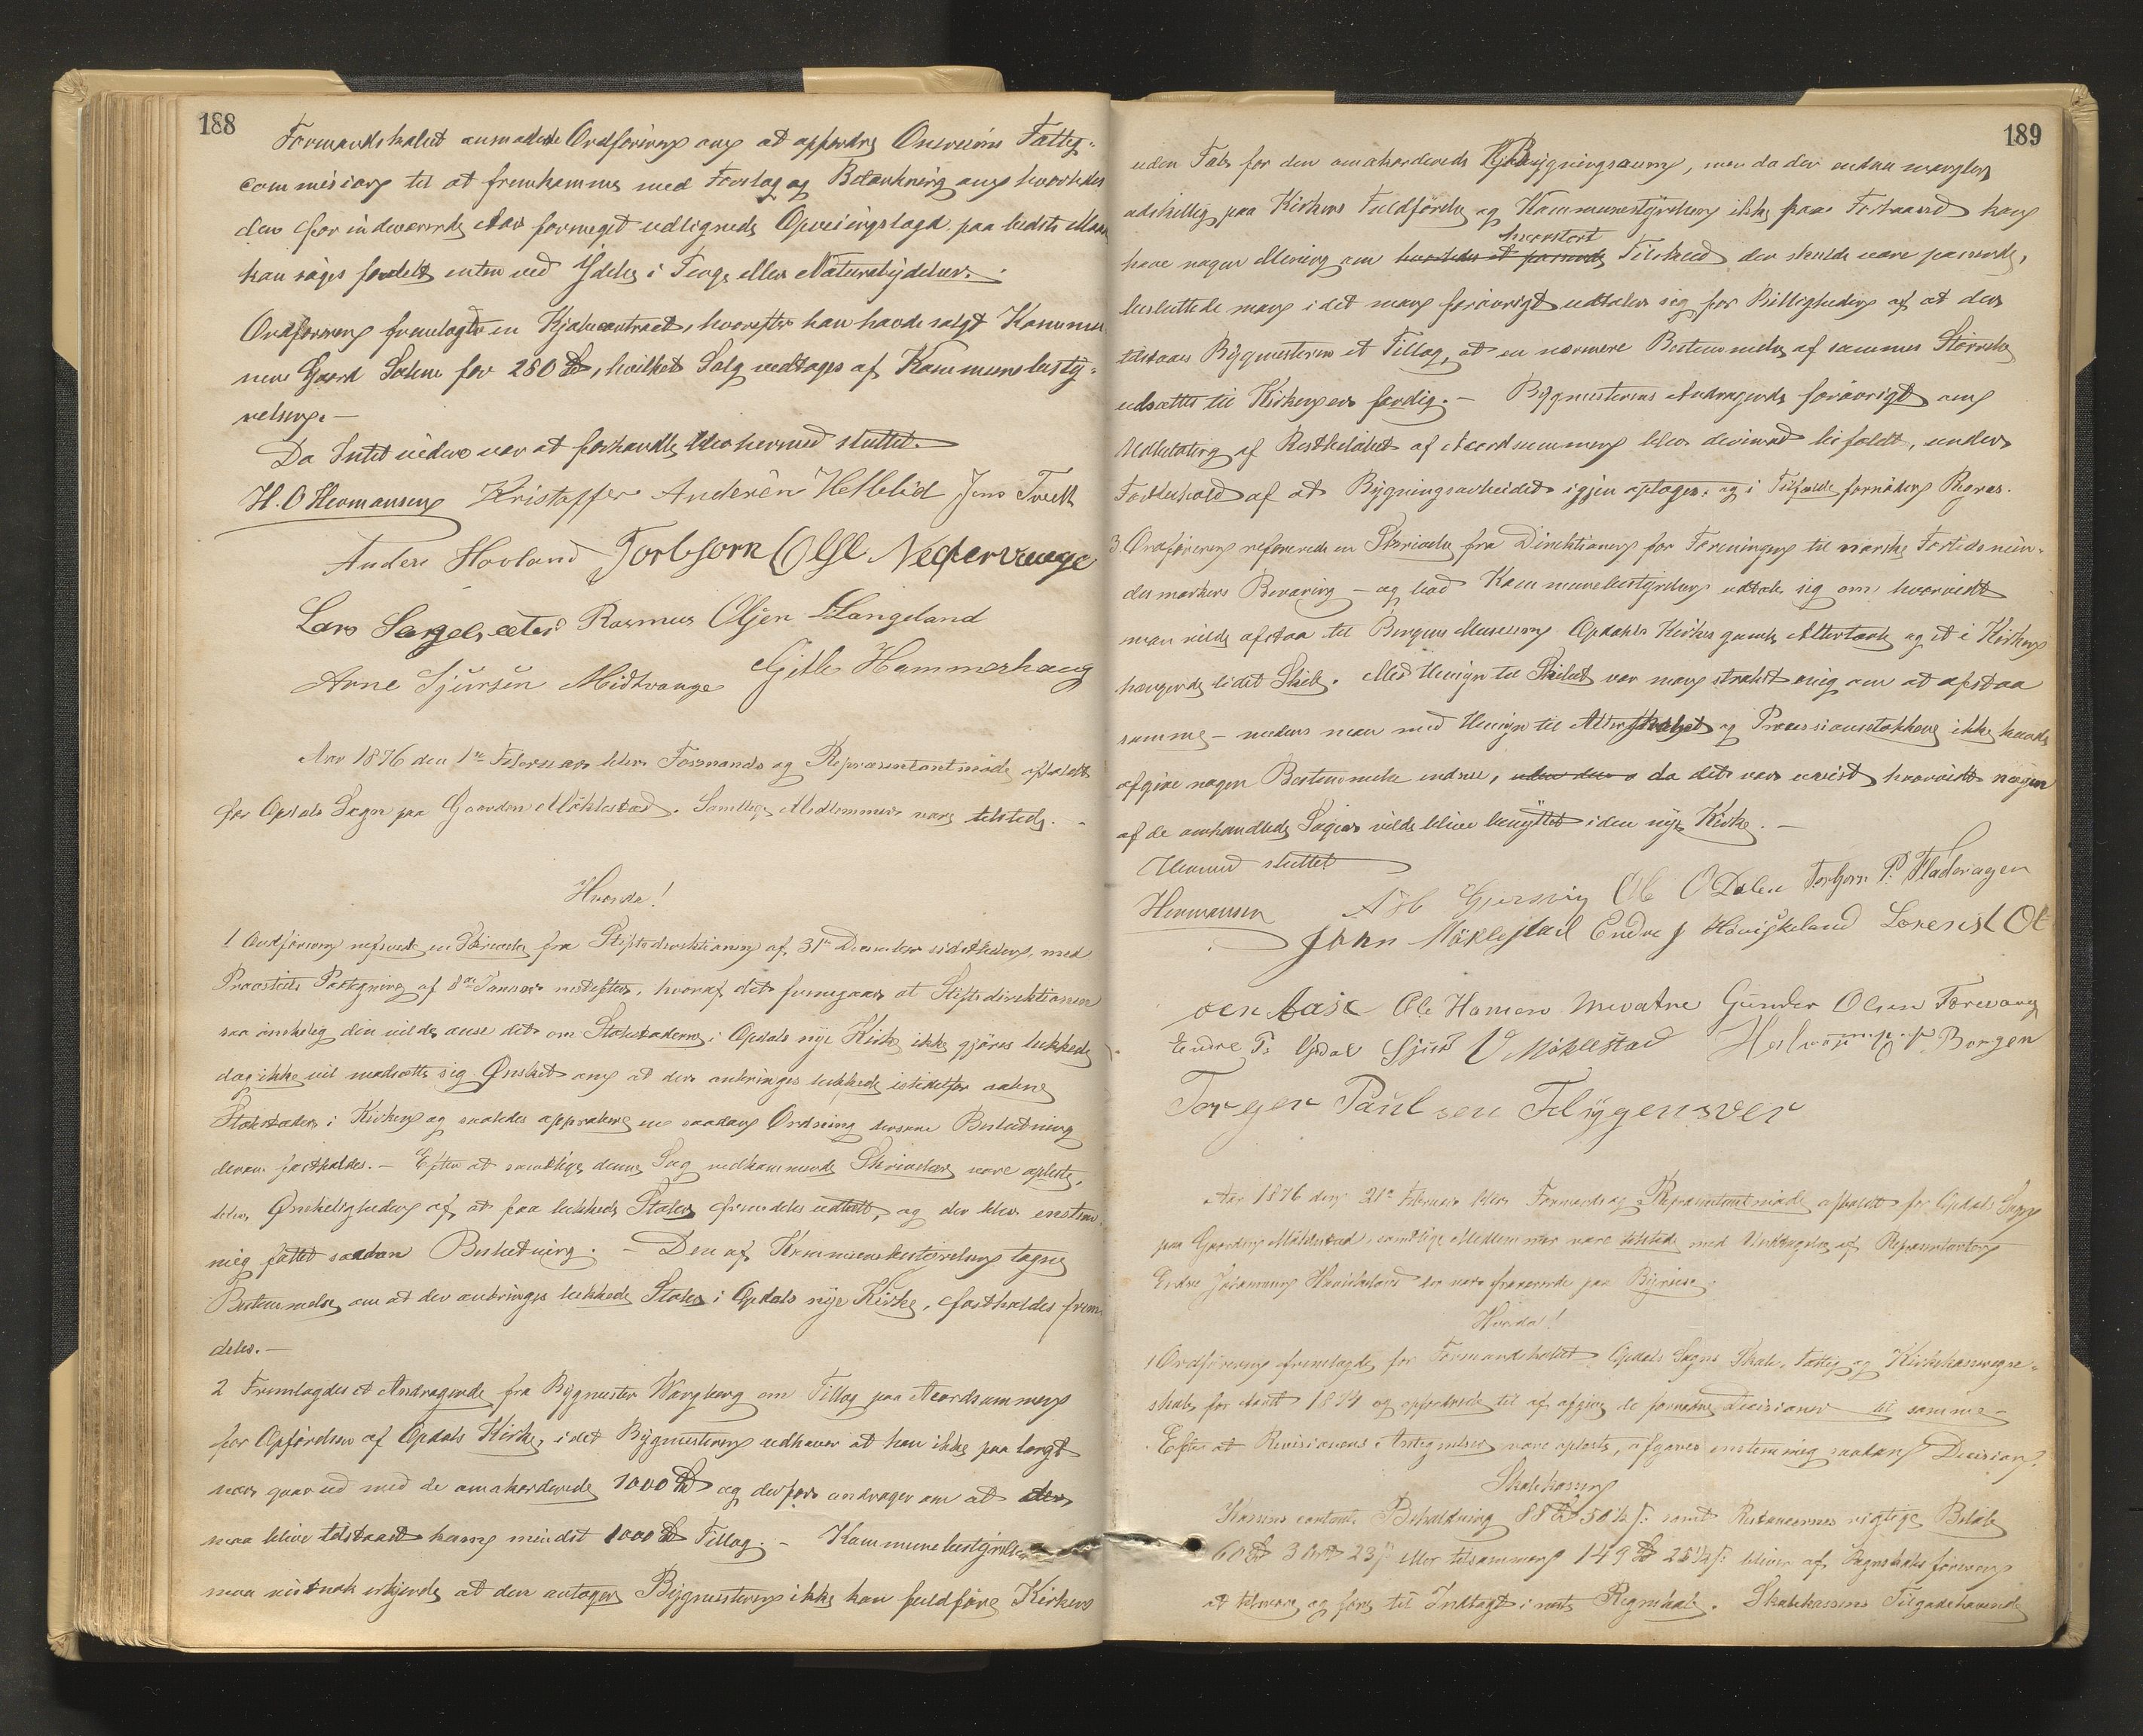 188
Formandskabet anmodede Ordföreren om at opfordre Onareims Fattig-
commission til at fremkomme med Forslag og Betænkning om hvorledes
den for indeværende Aar formeget udlignede paa bedste Maade
kan söges fordelt enten ved Ydelse i Penge eller Naturalydelser.
Ordföreren fremlagde en Kjöbecontract, hvorefter han havde solgt Kommu-
nens Gaard for 280 Spd, hvilket Salg vedtoges af Kommunebesty-
relsen. –
Da Intet videre var at forhandle blev hermed sluttet.
H. O Hermansen Kristaffer Andersen Hellelid Jens Tvedt
Anders Hovland Torbjorn Olsen Nedrevaage
Lars Rasmus Olsen Langeland
Arne Sjursen Midtvaage Gitle Hammerhaug
Aar 1876 den 1ste Februar blev Formands og Repræsentantmöde afholdt
for Opdals Sogn paa Gaarden Möklestad. Samtlige Medlemmer vare tilstede. –
Hvorda!
1 Ordföreren refererede en Skrivelse fra Stiftsdirektionen af 31te December sidstleden, med
Provstiets Paategning af 8de Januar nestefter, hvoraf det fremgaar at Stiftsdirektionen
saa önskelig den vilde anse det om Stolestaderne i Opdals nye Kirke ikke gjöres lukkede
dog ikke vil modsætte sig Önsket om at der anbringes lukkede istedetfor aabne
Stolestader i Kirken og saaledes approbere en saadan Ordning dersom Beslutning
derom fastholdes. – Efter at samtlige denne Sag vedkommende Skrivelser vare oplæste,
blev Önskeligheden af at faa lukkede Stoler fremdeles udtalt, og der blev enstem-
mig fattet saadan Beslutning. – Den af Kommunebestyrelsen tagne
Bestemmelse om at der anbringes lukkede Stoler i Opdals nye Kirke, fastholdes frem-
deles. –
2 Fremlagdes et Andragende fra Bygmester Wangberg om Tillæg paa Acordsummen
for Opförelsen af Opdals Kirke, idet Bygmesteren udhæver at han ikke paa langt
nær gaar ud med de omakorderede 1000 Spd og derfor andrager om at der
maa blive tilstaaet ham mindst 1000 Spd Tillæg. – Kommunebestyrelsen
maa vistnok erkjende at den antagne Bygmester ikke kan fuldföre Kirkens
189
uden Tab for den omakorderede Byggningssum, men da der endnu mangler
adskillig paa Kirkens Fuldförelse og Kommunestyrelsen ikke paa Forhaand kan
hvorstort
have nogen Mening om hvorledes et passende Tilskud der skulde være passende,
besluttede man idet man forövrigt udtaler sig for Billigheden af at der
tilstaaes Bygmesteren et Tillæg, at en nærmere Bestemmelse af sammes Störrelse
udsættes til Kirken er færdig. – Bygmesterens Andragende forövrigt om
Udbetaling af Restbelöbet af Acordsummen blev derimod bifaldt, under
Forbehold af at Bygningsarbeidet igjen optages, og i Tilfælde fornöden Regres.
3. Ordföreren refererede en Skrivelse fra Direktionen for Foreningen til norske Fortidsmin-
desmærkers Bevaring – og bad Kommunebestyrelsen udtale sig om hvorvidt
man vilde afstaa til Bergens Museum Opdals Kirkes gamle Altertavle og et i Kirken
hængende lidet Skib. Med Hensyn til Skibet var man strakst enig om at afstaa
samme – medens man med Hensyn til Alterskabet og Processionsstokkene ikke kunde
afgive nogen Bestemmelse endnu, da det var uvist hvorvidt nogen
af de omhandlede Sager vilde blive benyttet i den nye Kirke. –
Hermed sluttet
Hermansen Gjersvig Ole O Dalen Torbjorn P. Fladeragen
John Möklestad Endre J Hövikeland Lorens Ol
sen Aase Ole Hansen Unevatne Gunder Olsen Torevaag
Endre P. Opdal Sjur V Möklestad Borgen
Torger Paulsen Flygensver
Aar 1876 den 21de Februar blev Formands og Repræsentantmöde afholdt for Opdals Sogn
paa Gaarden Möklestad, samtlige Medlemmer vare tilstede med Undtagelse af Repræsentanten
Endre Johannesen Hövikeland der var fraværende paa Byreise.
Hvorda!
1 Ordföreren fremlagde for Formandskabet Opdals Sogns Skole, Fattig og Kirkekasseregn-
skab for Aaret 1874 og opfordrede til at afgive de fornödne Decisioner til samme –
Efter at Revisionens Antegnelser vare oplæste, afgaves enstemmig saadan Decision:
Skolekassen
Kassens contante Beholdning 88 Spd 50½ s. samt Restancernes rigtige Belöb
60 Spd 3 Ort 23 s. eller tilsammen 149 Spd 25½ s. bliver af Regnskabsföreren
at tilsvare og före til Indtægt i næste Regnskab. Skolekassens Tilgodehavende